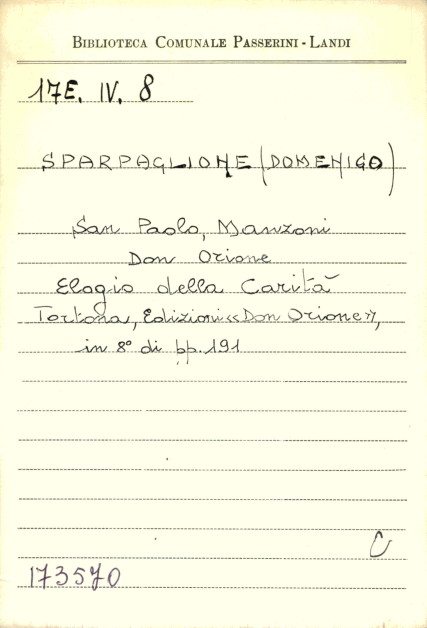 BIBLIOTECA COMUNALE PASSERINI - LANDI
17E. IV. 8
SPARPAGLIONE (DOMENICO)
San Paolo, Manzoni
Don Orione
Elogio della Carità
Tortona, Edizioni «Don Orione»,
in 8° di pp. 191
C
173570